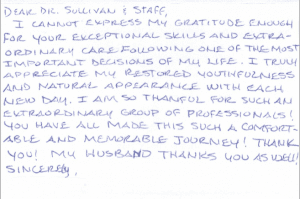 DEAR DR. SULLIVAN & STAFF,
I CANNOT EXPRESS MY GRATITUDE ENOUGH
FOR YOUR EXCEPTIONAL SKILLS AND EXTRA-
ORDINARY CARE FOLLOWING ONE OF THE MOST
IMPORTANT DECISIONS OF MY LIFE. I TRULY
APPRECIATE MY RESTORED YOUTHFULNESS
AND NATURAL APPEARANCE WITH EACH
NEW DAY. I AM SO THANFUL FOR SUCH AN
EXTRAORDINARY GROUP OF PROFESSIONALS!
YOU HAVE ALL MADE THIS SUCH A COMFORT-
ABLE AND MEMORABLE JOURNEY! THANK
YOU! MY HUSBAND THANKS YOU AS WELL!
SINCERELY,